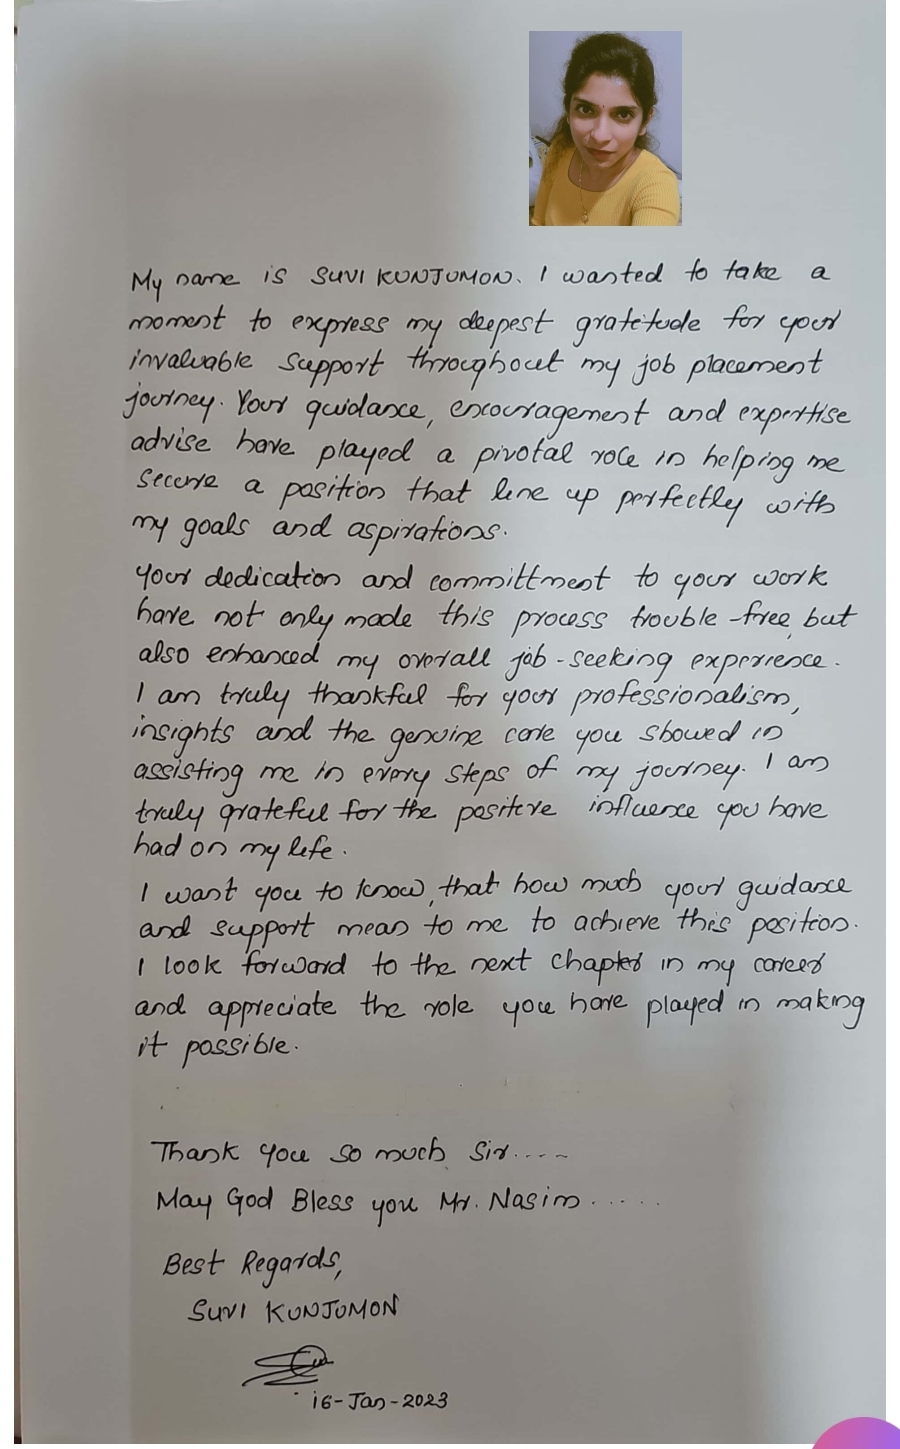 My name is SUVI KUNJUMON. I wanted to take a
moment to express my deepest gratitude for your
invaluable support throughout my job placement
journey. Your guidance, encouragement and expertise
advise have played a pivotal role in helping me
secure a position that line up perfectly with
my goals and aspirations.
Your dedication and committment to your work
have not only made this process trouble-free, but
also enhanced my overall job-seeking experience.
I am truly thankful for your professionalism,
insights and the genuine care you showed in
assisting me in every steps of my journey. I am
truly grateful for the positive influence you have
had on my life.
I want you to know, that how much your guidance
and support mean to me to achieve this position.
I look forward to the next chapter in my career
and appreciate the role you have played in making
it possible.
Thank you so much Sir....
May God Bless you Mr. Nasim.....
Best Regards,
SUVI KUNJUMON
16-Jan-2023